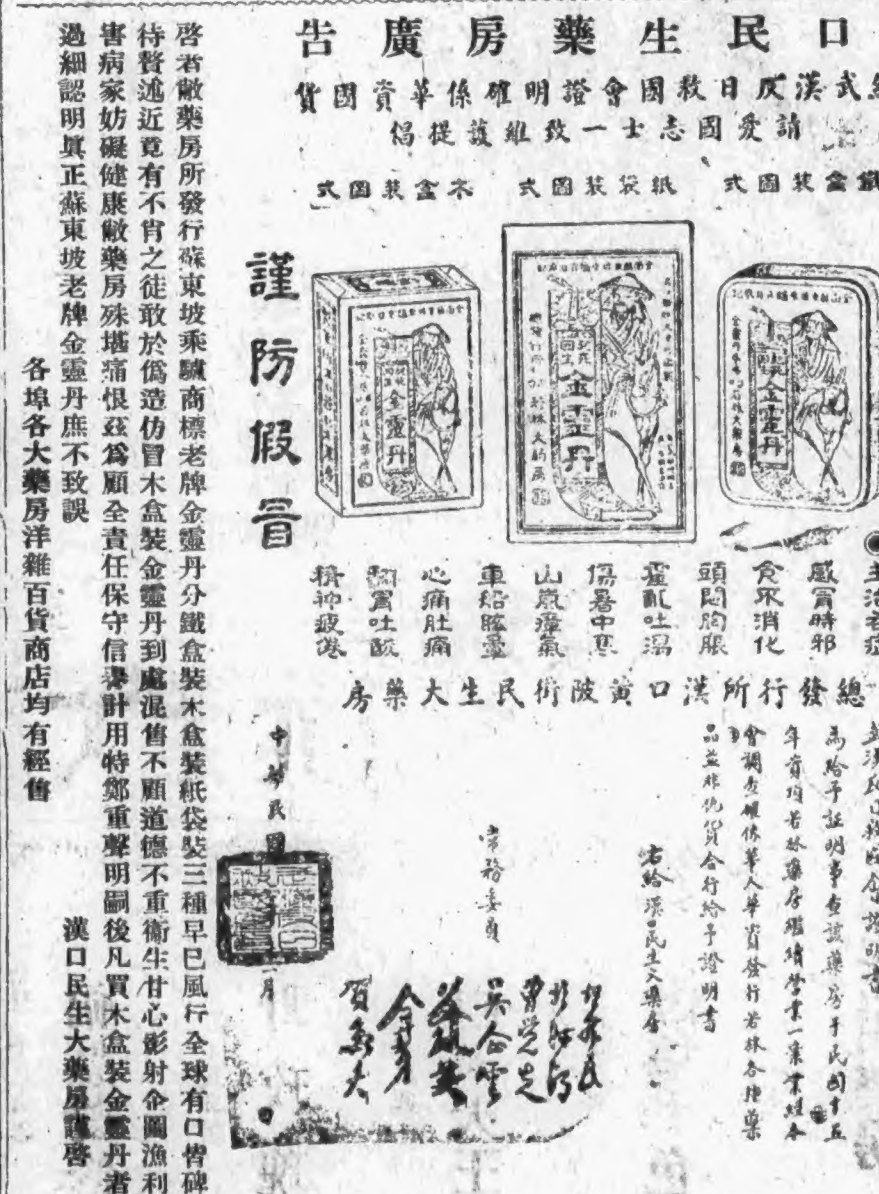 口民生藥房廣告
武漢反日救國會證明確係華資國貨
請愛國志士一致維護提倡
鐵盒裝圖式
紙袋裝圖式
木盒裝圖式
金靈丹
金靈丹
金靈丹
謹防假冒
主治各症
感冒時邪
食不消化
頭悶胸脹
霍亂吐瀉
傷暑中寒
山嵐瘴氣
車船眩暈
心痛肚痛
翻胃吐酸
精神疲倦
總發行所漢口黃陂街民生大藥房
為給予証明事查該藥房于民國十五
年資頂若林藥房繼續營業一案業經本
會調查確係華人華資發行若林各種藥
品並非仇貨合行給予證明書
右給漢口民生大藥房
常務委員
中華民國
月
日
啓者敝藥房所發行蘇東坡乘驢商標老牌金靈丹分鐵盒裝木盒裝紙袋裝三種早已風行全球有口皆碑
待贅述近竟有不肖之徒敢於僞造仿冒木盒裝金靈丹到處混售不顧道德不重衞生甘心影射企圖漁利
害病家妨礙健康敝藥房殊堪痛恨茲爲顧全責任保守信譽計用特鄭重聲明嗣後凡買木盒裝金靈丹者
過細認明眞正蘇東坡老牌金靈丹庶不致誤
漢口民生大藥房謹啓
各埠各大藥房洋雜百貨商店均有經售